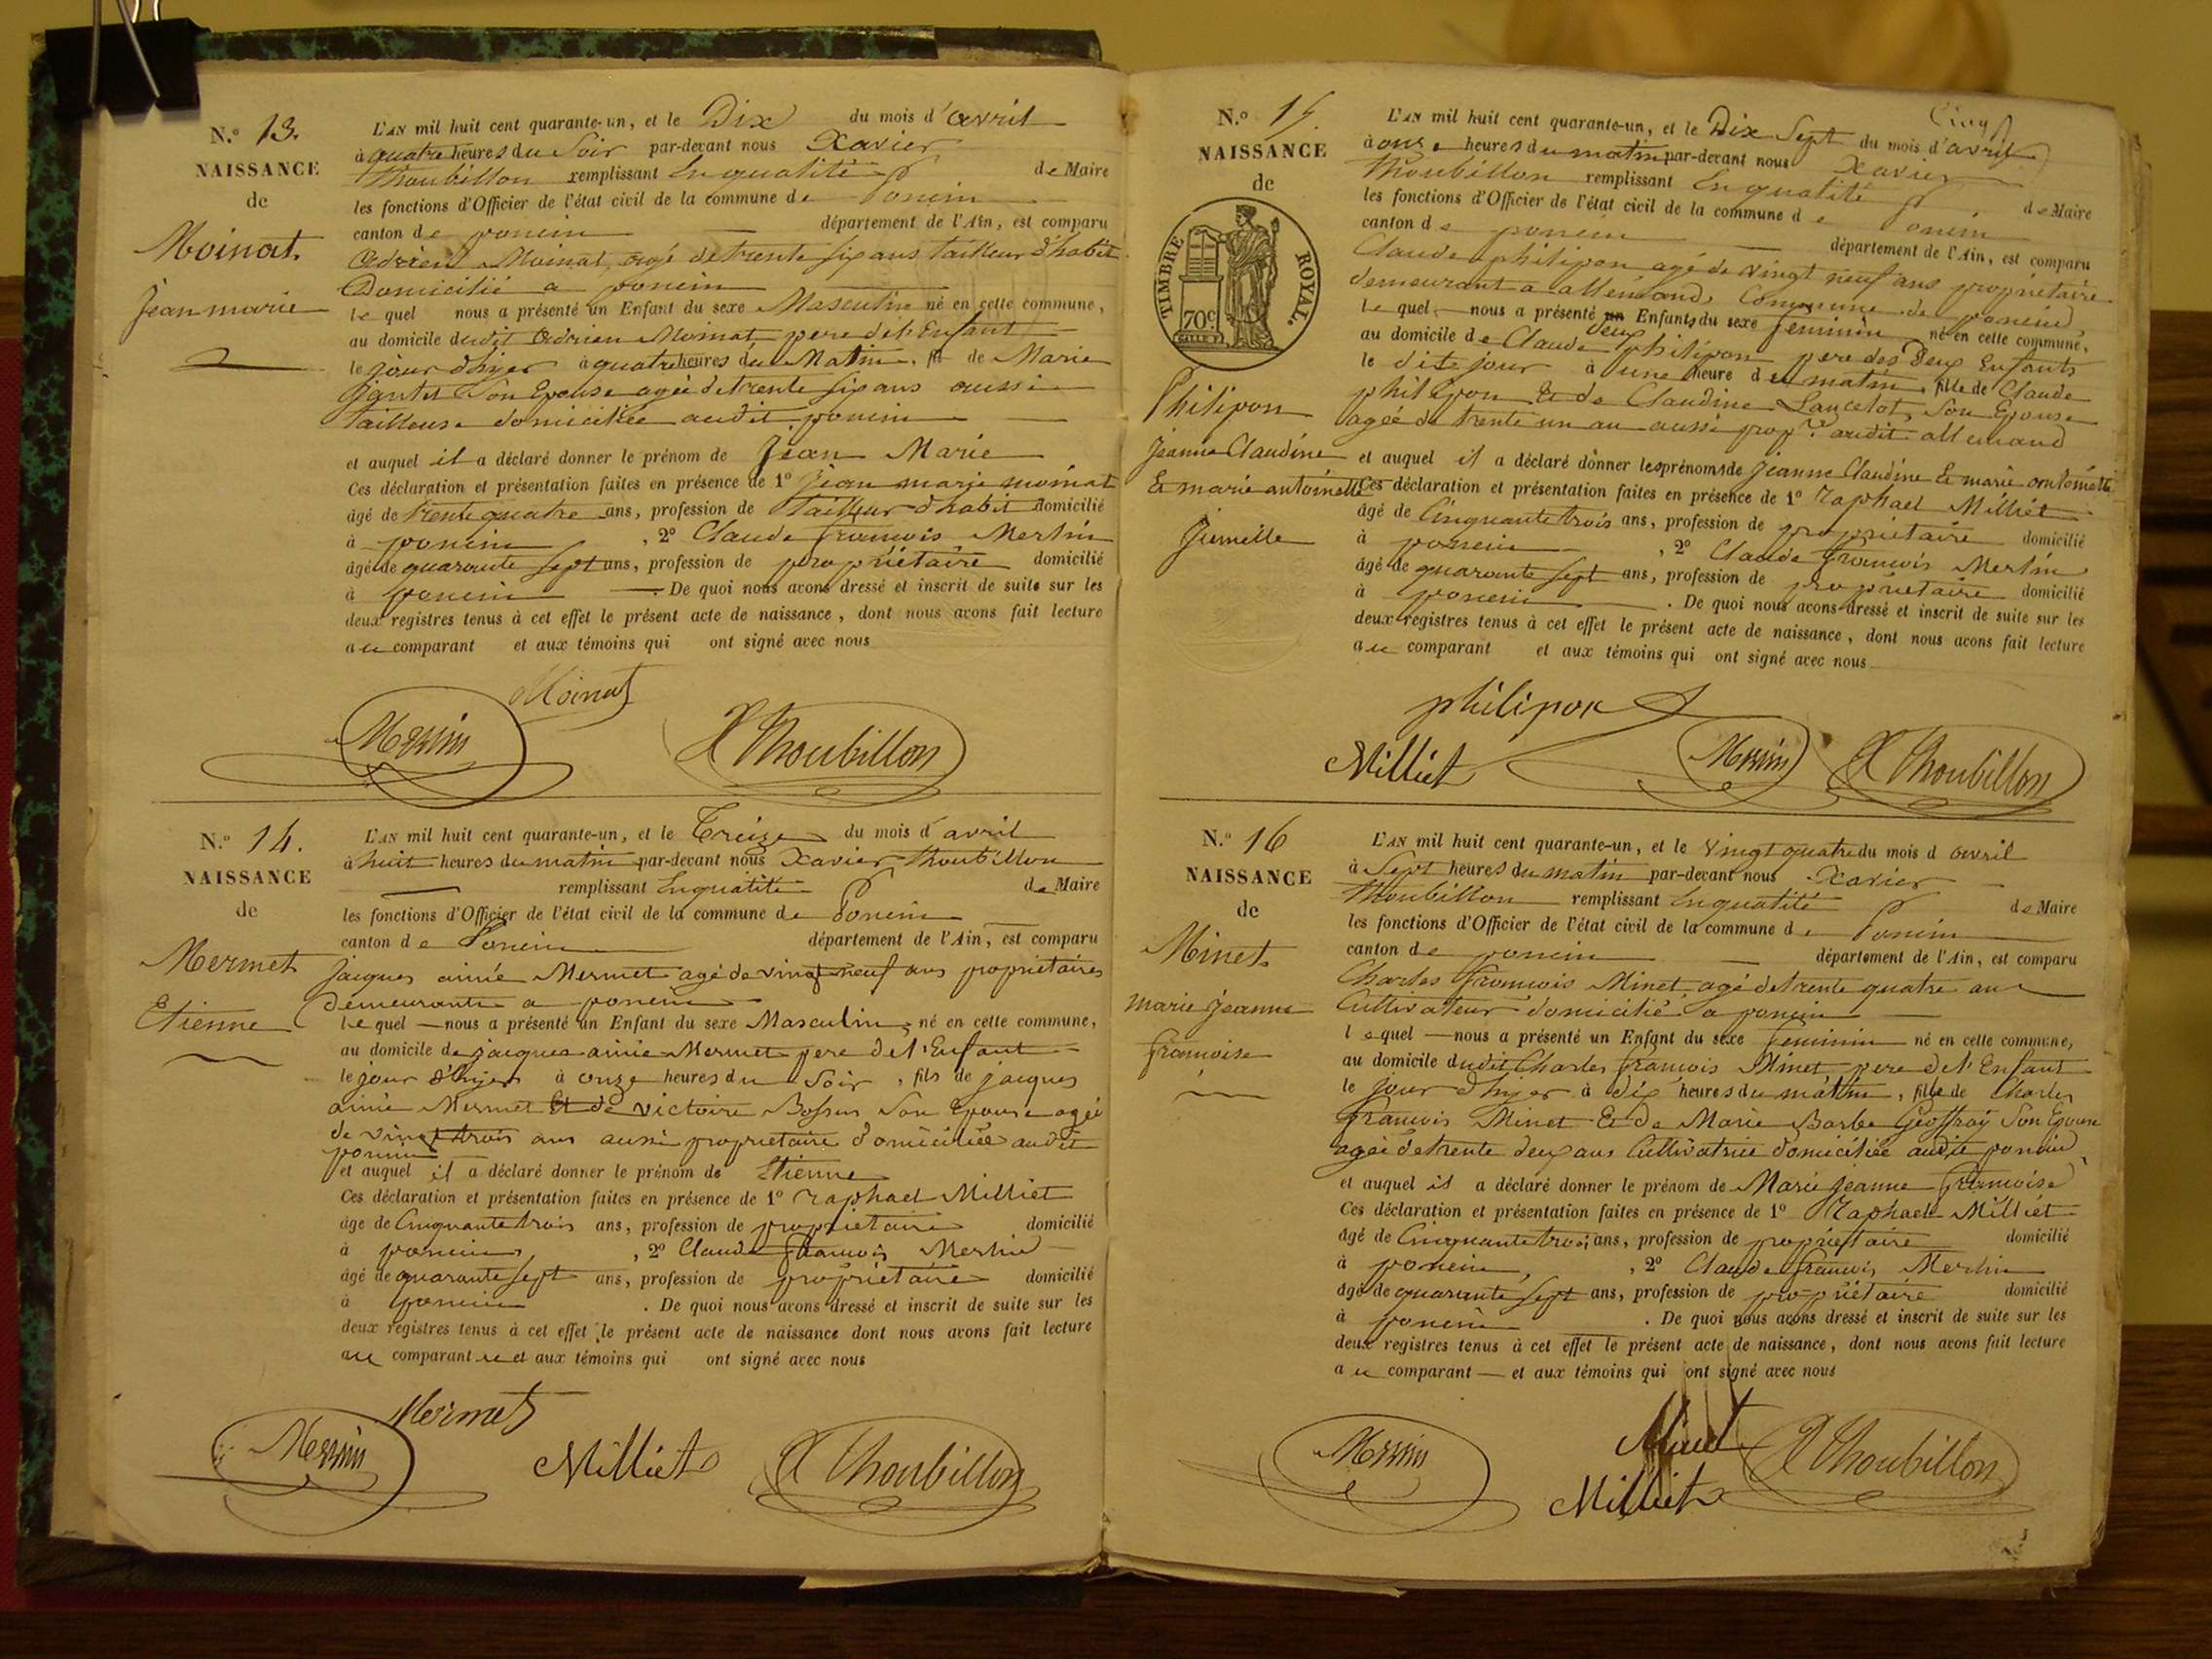 N.º 13.
NAISSANCE
de
Moinat
jean marie
L'AN mil huit cent quarante-un, et le Dix du mois d'avril
à quatre heures du Soir par-devant nous Xavier
Thoubillon remplissant En qualité de Maire
les fonctions d'Officier de l'état civil de la commune de Poncin
canton de poncin département de l'Ain, est comparu
Adrien Moinat, agé de trente six ans tailleur d'habit
Domicilié a poncin
le quel nous a présenté un Enfant du sexe Masculin né en cette commune,
au domicile dudit Adrien Moinat pere de l'Enfant
le jour d'hyer à quatre heures du Matin, fil de Marie
Son Epouse agée de trente six ans aussi
tailleuse domiciliée audit poncin
et auquel il a déclaré donner le prénom de Jean Marie
Ces déclaration et présentation faites en présence de 1º jean marie moinat
âgé de trente quatre ans, profession de tailleur d'habit domicilié
à poncin , 2º Claude francois Merlin
âgé de quarante sept ans, profession de propriétaire domicilié
à poncin . De quoi nous avons dressé et inscrit de suite sur les
deux registres tenus à cet effet le présent acte de naissance, dont nous avons fait lecture
au comparant et aux témoins qui ont signé avec nous
Moinat
Merlin X Thoubillon
N.º 14.
NAISSANCE
de
Mermet
Etienne
L'AN mil huit cent quarante-un, et le Treize du mois d'avril
à huit heures du matin par-devant nous Xavier Thoubillon
remplissant En qualité de Maire
les fonctions d'Officier de l'état civil de la commune de Poncin
canton de Poncin département de l'Ain, est comparu
jacques aimée Mermet agé de vingt neuf ans propriétaires
Demeurants a poncin
le quel nous a présenté un Enfant du sexe Masculin, né en cette commune,
au domicile de jacques aimée Mermet pere de l'Enfant
le jour d'hyer à onze heures du Soir, fils de jacques
aimée Mermet Et de victoire Son Epouse agée
de vingt trois ans aussi propriétaire domiciliée audit
poncin
et auquel il a déclaré donner le prénom de Etienne
Ces déclaration et présentation faites en présence de 1º raphael Milliet
âge de Cinquante trois ans, profession de propriétaire domicilié
à poncin , 2º Claude francois Merlin
âgé de quarante sept ans, profession de propriétaire domicilié
à poncin . De quoi nous avons dressé et inscrit de suite sur les
deux registres tenus à cet effet le présent acte de naissance dont nous avons fait lecture
au comparant et aux témoins qui ont signé avec nous
Mermet
Merlin Milliet X Thoubillon
Cinq
N.º 15.
NAISSANCE
de
TIMBRE ROYAL.
70c
Philipon
Jeanne Claudine
Et marie antoinette
jumelle
L'AN mil huit cent quarante-un, et le Dix Sept du mois d'avril
à onze heures du matin par-devant nous Xavier
Thoubillon remplissant En qualité de Maire
les fonctions d'Officier de l'état civil de la commune de Poncin
canton de poncin département de l'Ain, est comparu
Claude philipon agé de vingt neuf ans propriétaire
demeurant a allemand, Commune de poncin,
le quel nous a présenté un deux Enfants du sexe feminin né en cette commune,
au domicile de Claude philipon pere des Deux Enfants
le dite jour à une heure du matin, fille de Claude
philipon Et de Claudine Lancelot, Son Epouse
agée de trente un an aussi propre audit allemand
et auquel il a déclaré donner les prénoms de jeanne Claudine Et marie antoinette
Ces déclaration et présentation faites en présence de 1º raphael Milliet
âgé de Cinquante trois ans, profession de propriétaire domicilié
à poncin , 2º Claude francois Merlin
âgé de quarante sept ans, profession de propriétaire domicilié
à poncin . De quoi nous avons dressé et inscrit de suite sur les
deux registres tenus à cet effet le présent acte de naissance, dont nous avons fait lecture
au comparant et aux témoins qui ont signé avec nous
philipon
Milliet Merlin X Thoubillon
N.º 16
NAISSANCE
de
Minet
marie jeanne
francoise
L'AN mil huit cent quarante-un, et le vingt quatre du mois d avril
à Sept heures du matin par-devant nous Xavier
Thoubillon remplissant En qualité de Maire
les fonctions d'Officier de l'état civil de la commune de Poncin
canton de poncin département de l'Ain, est comparu
Charles francois Minet agé de trente quatre ans
Cultivateur domicilié a poncin
le quel nous a présenté un Enfant du sexe feminin né en cette commune,
au domicile dudit Charles francois Minet pere de l'Enfant
le jour d'hyer à dix heures du matin, fille de Charles
francois Minet Et De Marie Barbe Geoffray Son Epouse
agée de trente deux ans Cultivatrice domiciliée audit poncin,
et auquel il a déclaré donner le prénom de Marie jeanne francoise
Ces déclaration et présentation faites en présence de 1º Raphael Milliet
âgé de Cinquante trois ans, profession de propriétaire domicilié
à poncin, , 2º Claude francois Merlin
âgé de quarante sept ans, profession de propriétaire domicilié
à poncin . De quoi nous avons dressé et inscrit de suite sur les
deux registres tenus à cet effet le présent acte de naissance, dont nous avons fait lecture
au comparant et aux témoins qui ont signé avec nous
Merlin Minet X Thoubillon
Milliet